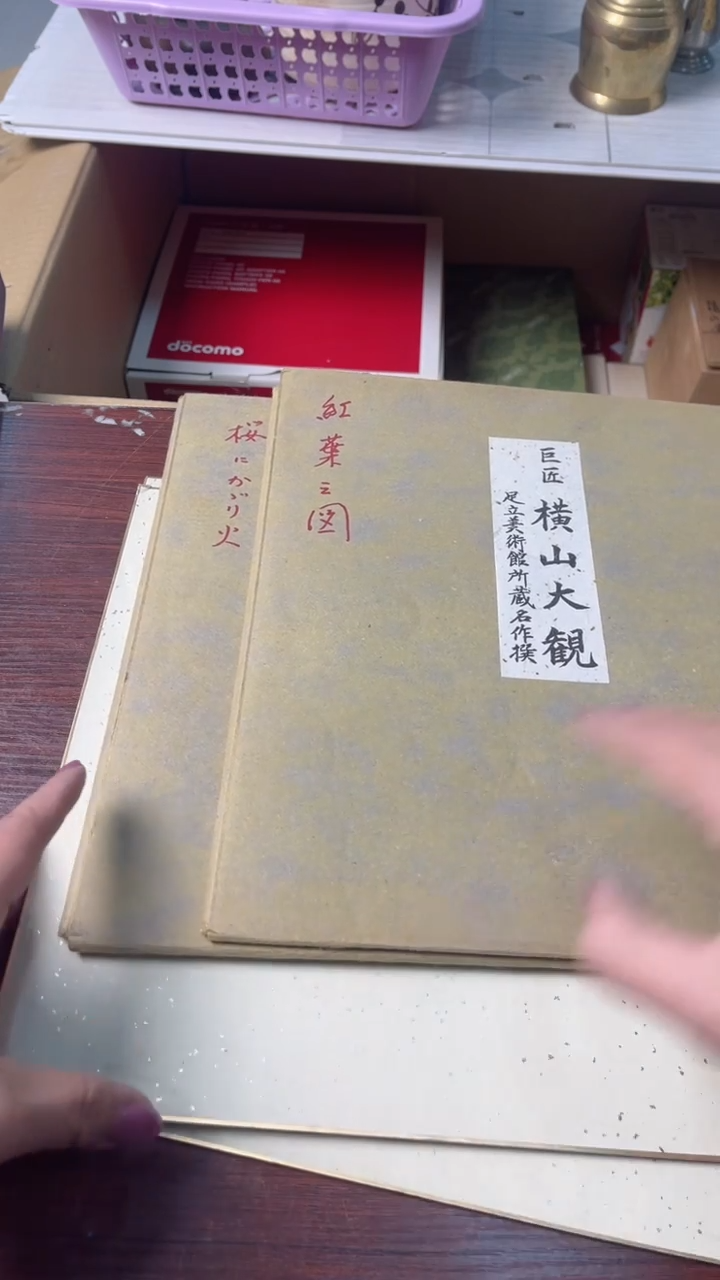 紅葉之図
巨匠 横山大観
足立美術館所蔵名作撰
桜にかゞり火
docomo